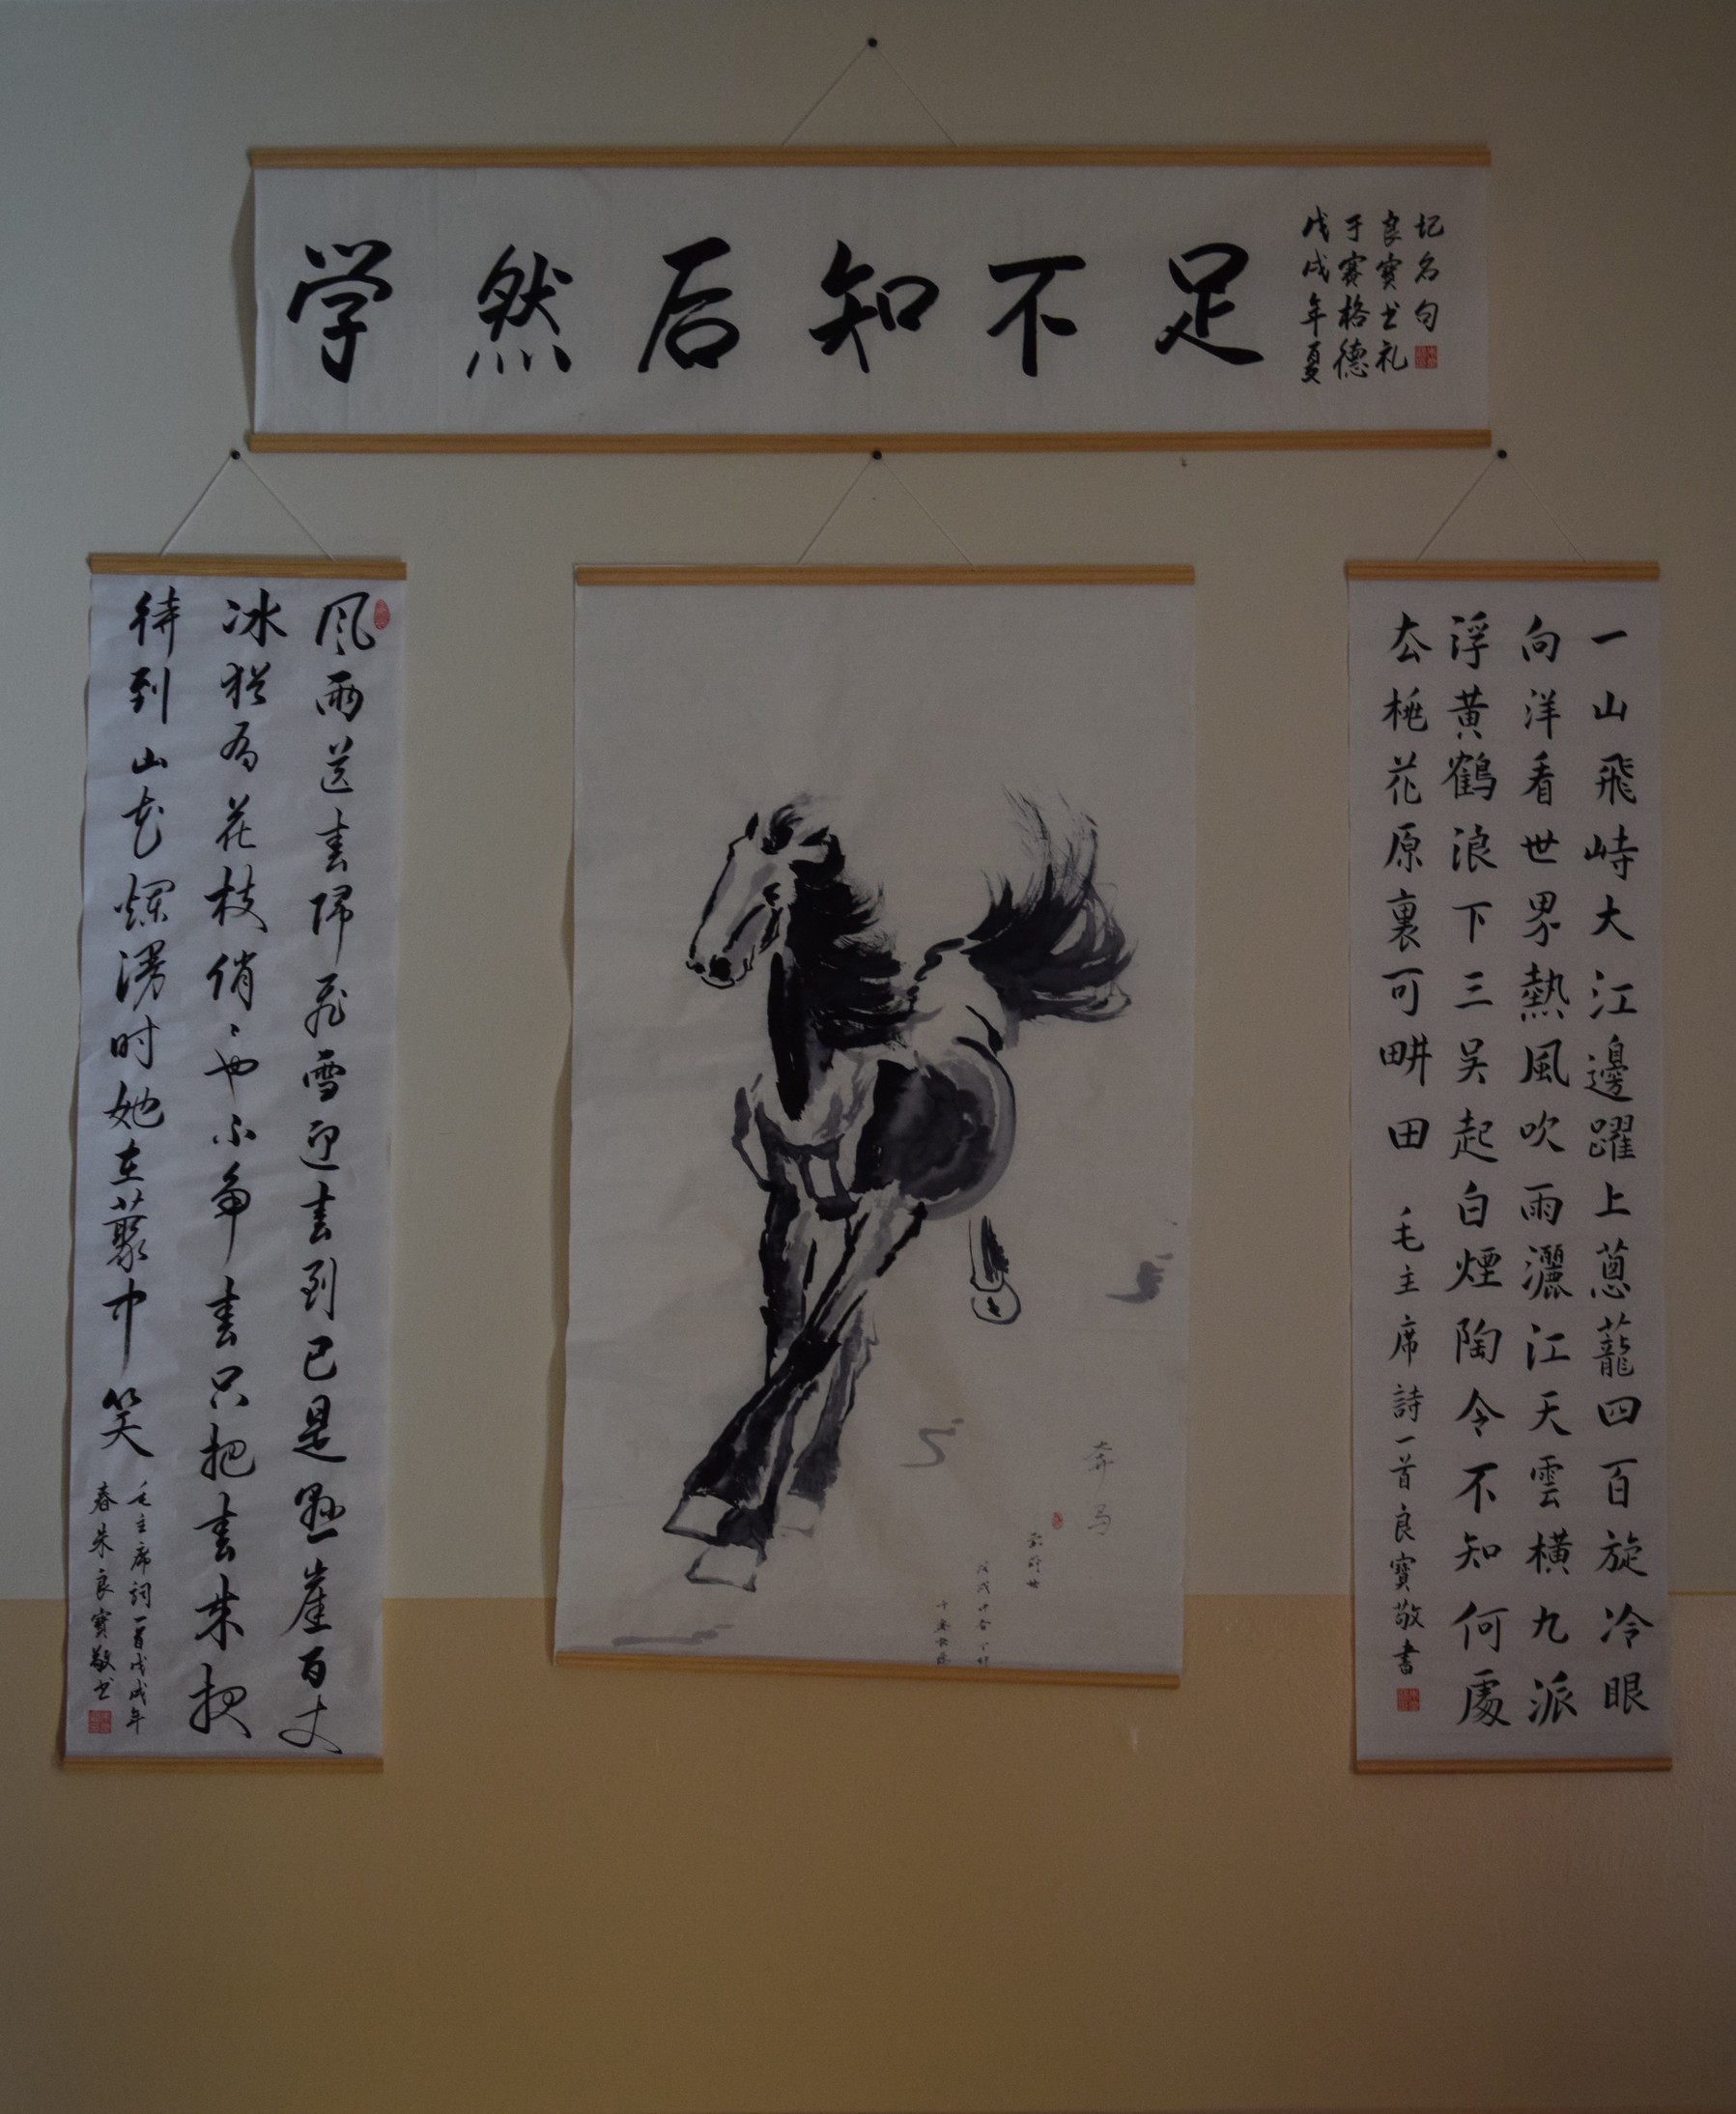 学然后知不足
戊戌年夏
于賽格德
良寳书礼
记名句
风雨送春归飞雪迎春到已是悬崖百丈
冰犹有花枝俏〻也不争春只把春来报
待到山花烂漫时她在藂中笑
毛主席詞一首戊戌年
春朱良寳敬书
奔马
一山飛峙大江邊躍上蔥蘢四百旋冷眼
向洋看世界熱風吹雨灑江天雲橫九派
浮黃鶴浪下三吴起白煙陶令不知何處
厺桃花原裏可畊田 毛主席詩一首良寳敬書